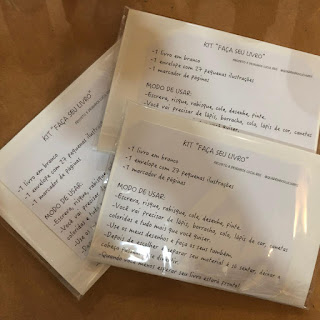 KIT "FAÇA SEU LIVRO"
-1 livro em branco
-1 envelope com 27 pequenas ilustrações
-1 marcador de páginas
MODO DE USAR:
-Escreva, risque, rabisque, cole, desenhe, pinte.
-Você vai precisar de lápis, borracha, cola, lápis de cor, canetas
KIT "FAÇA SEU LIVRO"
-1 livro em branco
-1 envelope com 27 pequenas ilustrações
-1 marcador de páginas
MODO DE USAR:
-Escreva, risque, rabisque, cole, desenhe, pinte.
-Você vai precisar de lápis, borracha, cola, lápis de cor, canetas
coloridas e tudo mais que você quiser.
-Use os meus desenhos e faça os seus também.
-Depois de escolher e separar seu material é só sentar, deixar a
cabeça
-Quando você menos esperar seu livro estará pronto!
KIT "FAÇA SEU LIVRO"
-1 livro em branco
-1 envelope com 27 pequenas
-1 marcador de páginas
MODO DE USAR:
-Escreva, risque, rabisque,
-Você vai precisar de
coloridas e tudo mais
-Use os meus
-Depois de
cabeça